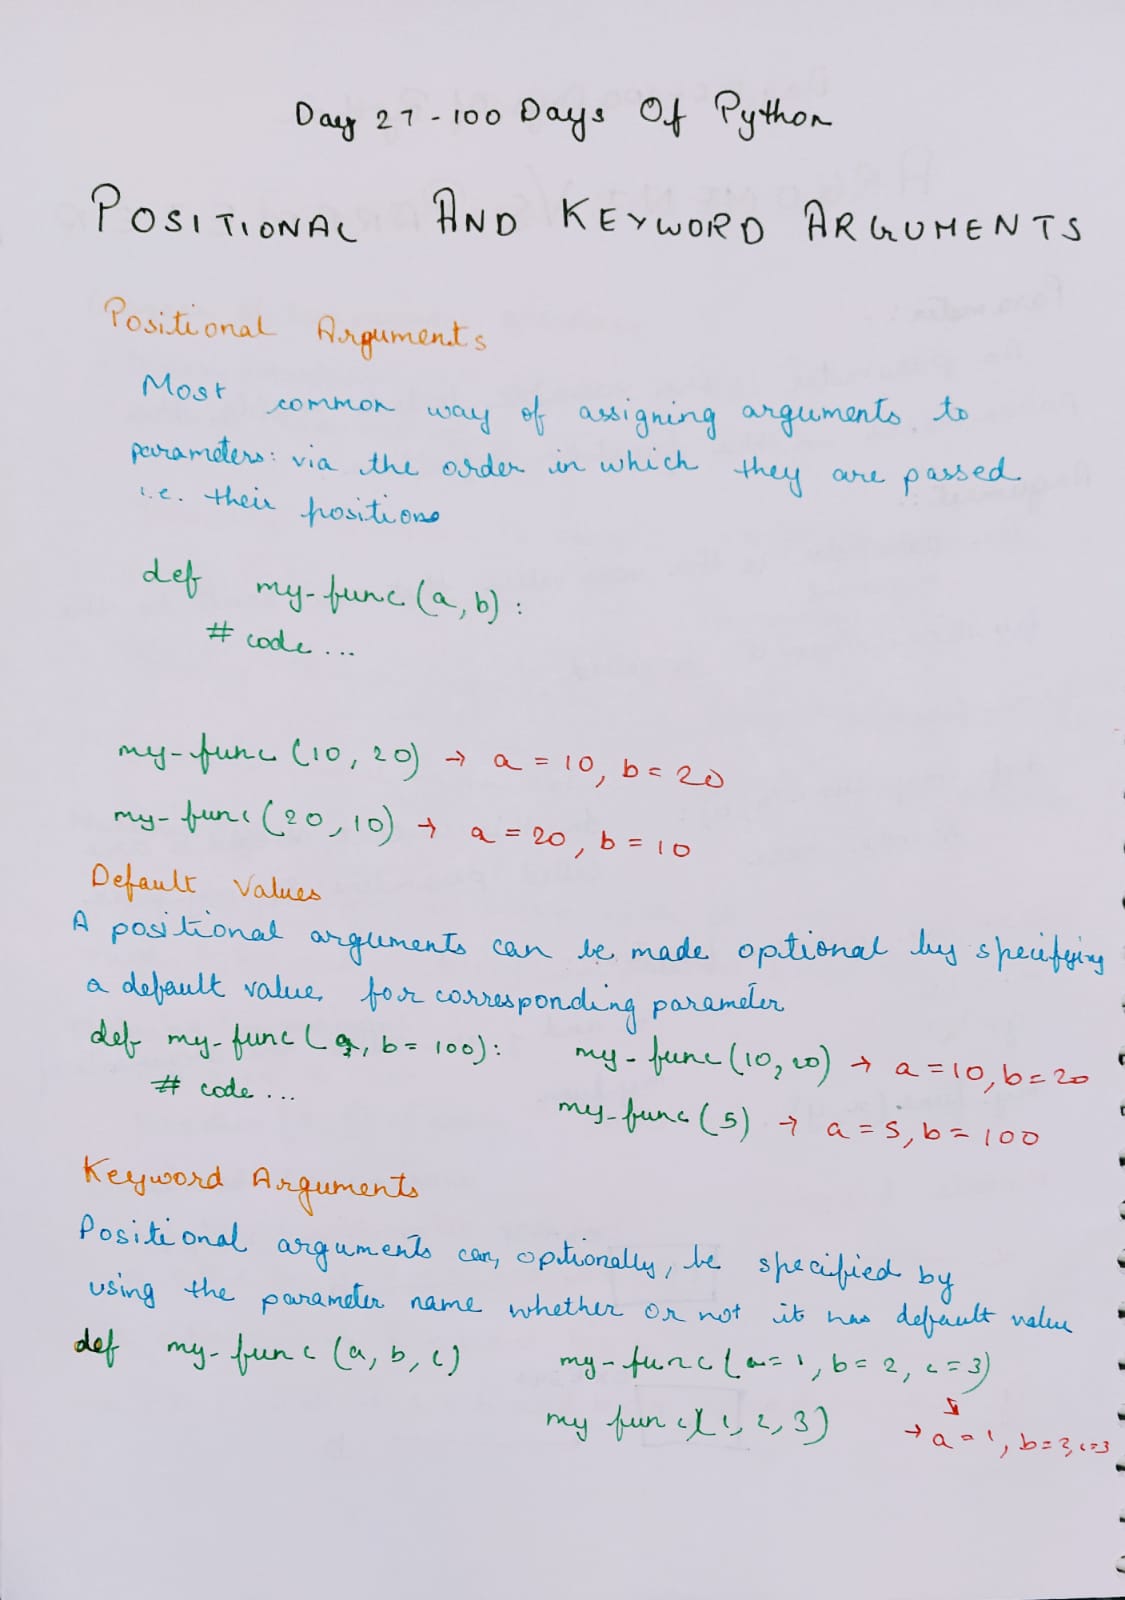 Day 27 - 100 Days Of Python
POSITIONAL AND KEYWORD ARGUMENTS
Positional Arguments
Most common way of assigning arguments to
parameters: via the order in which they are passed
i.e. their positions
def my-func (a, b) :
# code ...
my-func (10, 20) → a = 10, b = 20
my-func (20, 10) → a = 20, b = 10
Default Values
A positional arguments can be made optional by specifying
a default value for corresponding parameter
def my-func (a, b = 100) : my-func (10, 20) → a = 10, b = 20
# code ... my-func (5) → a = 5, b = 100
Keyword Arguments
Positional arguments can, optionally, be specified by
using the parameter name whether or not it has default value
def my-func (a, b, c) my-func (a = 1, b = 2, c = 3)
my func (1, 2, 3) → a = 1, b = 2, c = 3